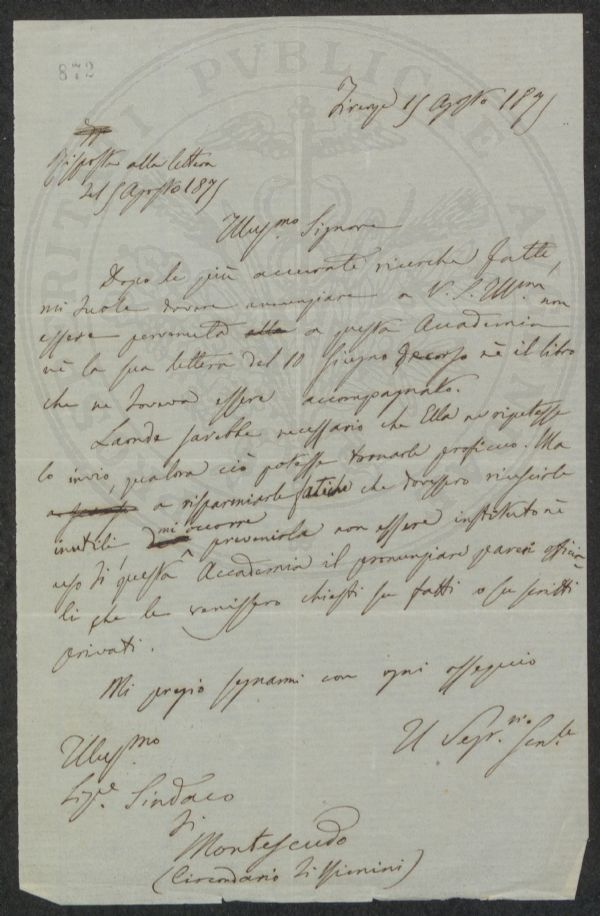 872
Firenze 15 Agosto 1875
Risposta alla lettera
del 5 Agosto 1875
Illus.mo Signore
Dopo le più accurate ricerche fatte,
mi duole dovere annunziare a V. S. Ill.ma non
essere pervenuta alla a questa Accademia
nè la sua lettera del 10 Giugno decorso nè il libro
che ne doveva essere accompagnato.
Laonde sarebbe necessario che Ella ne ripetesse
lo invio, qualora ciò potesse tornarle proficuo. Ma
a risparmiarle fatiche che dovessero riuscirle
inutili mi occorre prevenirla non essere instituto nè
uso di questa Accademia il pronunziare pareri officia-
li che le venissero chiesti su fatti o su scritti
privati.
Mi pregio segnarmi con ogni ossequio
Il Segr.rio Gen.le
Illus.mo
Sig.e Sindaco
di
Montescudo
(Circondario di Rimini)